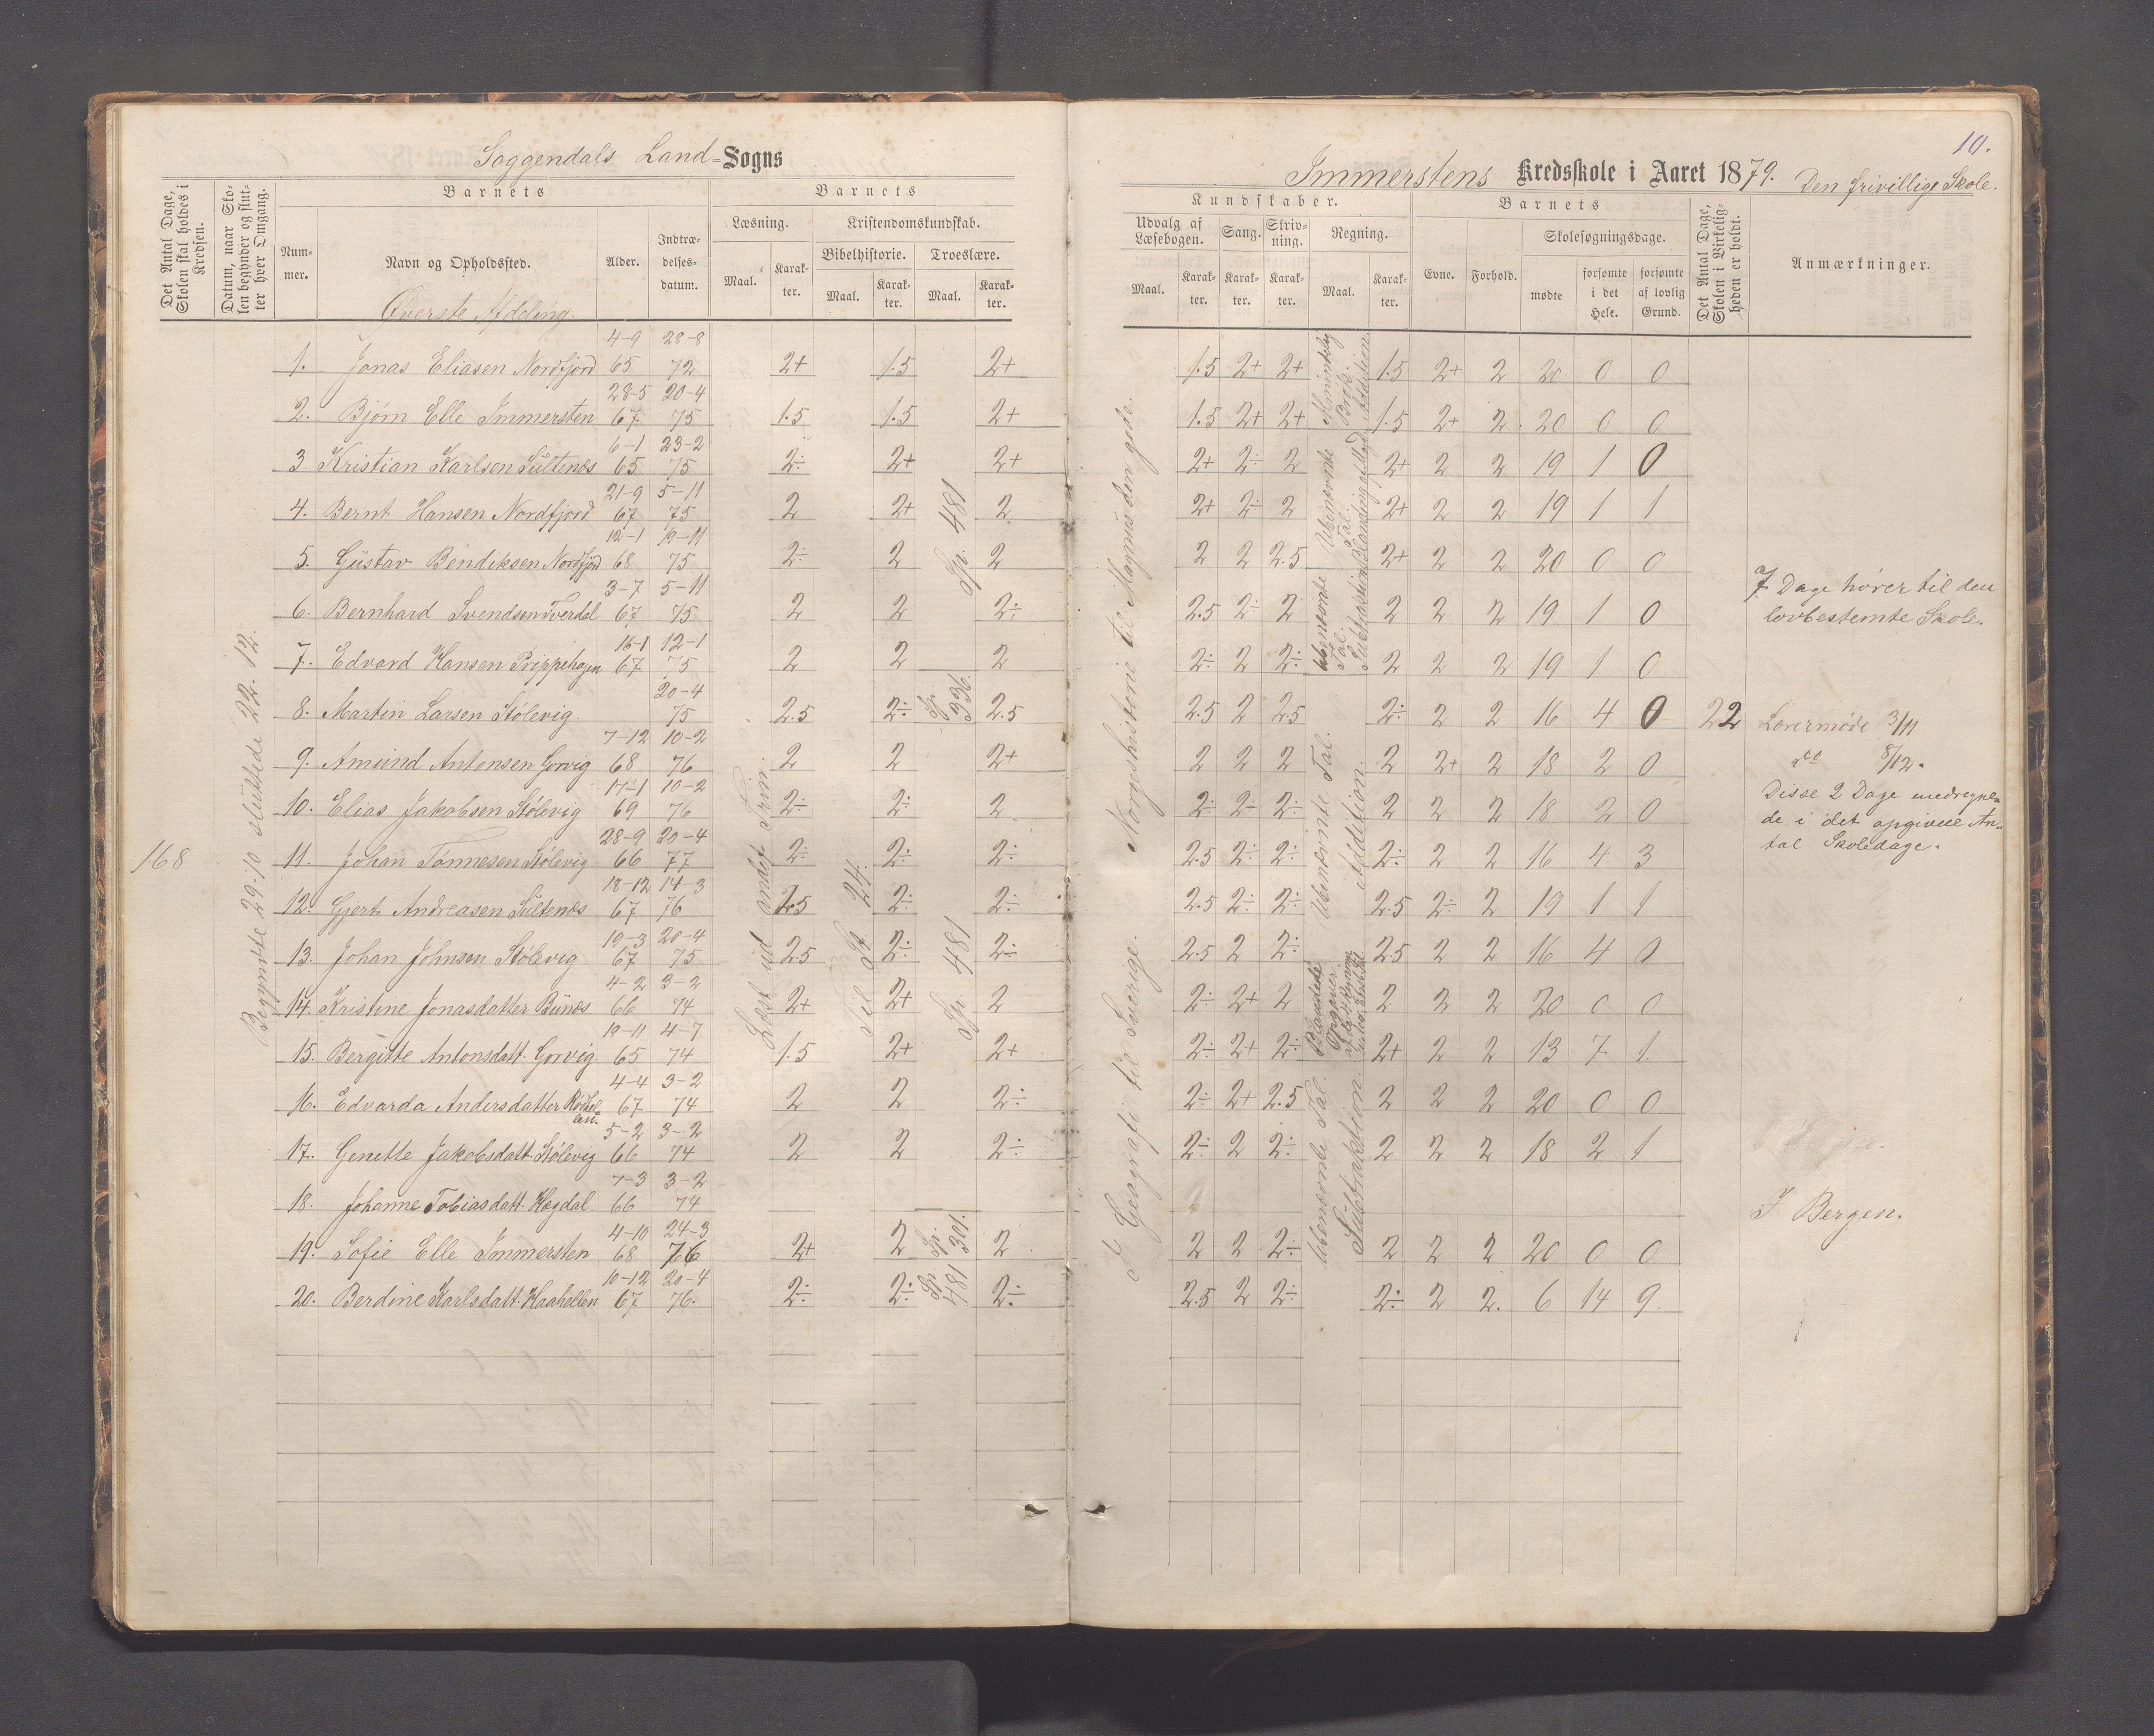 Soggendals Land-Sogns
Det Antal Dage, Skolen skal holdes i Kredsen.
Datum, naar Skolen begynder og slutter hver Omgang.
Barnets
Barnets
Nummer.
Navn og Opholdssted.
Alder.
Indtrædelsesdatum.
Læsning.
Kristendomskundskab.
Bibelhistorie.
Troeslære.
Maal.
Karakter.
Maal.
Karakter.
Maal.
Karakter.
Øverste Afdeling.
168
Begyndte 29.10 sluttede 22.12.
Læst ud andet Trin.
Til St. 24.
Sp. 481
Sp. 336.
Sp. 481
Sp. 301.
Sp. 481
1. Jonas Eliasen Nordfjord 4-9 65 28-8 72 2+ 1.5 2+
2. Bjørn Elle Immersten 28-5 67 20-4 75 1.5 1.5 2+
3. Kristian Karlsen Sültenæs 6-1 65 23-2 75 2÷ 2+ 2+
4. Bernt Hansen Nordfjord 21-9 67 5-11 75 2 2+ 2
5. Güstav Bendiksen Nordfjord 12-1 68 19-11 75 2÷ 2 2
6. Bernhard Svendsen Tverdal 3-7 67 5-11 75 2 2 2÷
7. Edvard Hansen Prippehagen 16-1 67 12-1 75 2 2 2
8. Martin Larsen Stølevig 20-4 75 2.5 2÷ 2.5
9. Amünd Antonsen Gorvig 7-12 68 10-2 76 2 2 2+
10. Elias Jakobsen Stølevig 17-1 69 10-2 76 2÷ 2÷ 2
11. Johan Tønnesen Stølevig 28-9 66 20-4 77 2÷ 2÷ 2÷
12. Gjert Andreasen Sültenæs 18-12 67 14-3 76 2.5 2÷ 2÷
13. Johan Johnsen Stølevig 19-3 67 20-4 75 2.5 2÷ 2÷
14. Kristine Jonasdatter Bünæs 4-2 66 3-2 74 2+ 2+ 2
15. Bergitte Antonsdatt. Gorvig 19-11 65 4-7 74 1.5 2+ 2+
16. Edvarda Andersdatter 4-4 67 3-2 74 2 2 2÷
17. Genette Jakobsdatt. Stølevig 5-2 66 3-2 74 2 2 2÷
18. Johanne Tobiasdatt. Høgdal. 7-3 66 3-2 74
19. Sofie Elle Immersten 4-10 68 24-3 76 2+ 2 2
20. Berdine Karlsdatt. Haahellen 10-12 67 20-4 76. 2÷ 2÷ 2÷
10.
Immerstens Kredsskole i Aaret 1879. Den frivillige Skole.
Kundskaber.
Barnets
Udvalg af Læsebogen.
Sang.
Skrivning.
Regning.
Maal.
Karakter.
Karakter.
Karakter.
Maal.
Karakter.
Evne.
Forhold.
Skolesøgningsdage.
mødte
forsømte i det Hele.
forsømte af lovlig Grund.
Det Antal Dage, Skolen i Virkeligheden er holdt.
Anmærkninger.
I Geografi til Sverige. Norgeshistorie til Magnus den gode.
Almindelig Brøk. Addition
Ubenævnte Tal.
Ubenævnte Tal. Subtraktion
Ubenævnte Tal. Addition.
Blandede Opgaver
Ubenævnte Tal. Subtraktion.
1.5 2+ 2+ 1.5 2+ 2 20 0 0
1.5 2+ 2+ 1.5 2+ 2. 20 0 0
2+ 2÷ 2 2+ 2 2 19 1 0
2+ 2÷ 2 2+ 2 2 19 1 1
2 2 2.5 2+ 2 2 20 0 0
2.5 2÷ 2 2 2 2 19 1 0
2÷ 2 2÷ 2 2 2 19 1 0
2.5 2 2.5 2÷ 2 2 16 4 0 22
2 2 2 2 2+ 2 18 2 0
2÷ 2÷ 2÷ 2 2 2 18 2 0
2.5 2÷ 2÷ 2÷ 2 2 16 4 3
2.5 2÷ 2÷ 2.5 2÷ 2 19 1 1
2.5 2 2÷ 2.5 2 2 16 4 0
2÷ 2+ 2 2 2 2 20 0 0
2÷ 2+ 2÷ 2+ 2 2 13 7 1.
2÷ 2+ 2.5 2 2 2 20 0 0
2÷ 2 2÷ 2 2 2 18 2 1
2 2 2÷ 2 2 2 20 0 0
2.5 2 2÷ 2÷ 2 2. 6 14 9.
7 Dage hører til den
lovbestemte Skole.
Lærermøde 3/11
8/12.
Disse 2 Dage medregne-
de i det opgivne An-
tal Skoledage.
I Bergen.